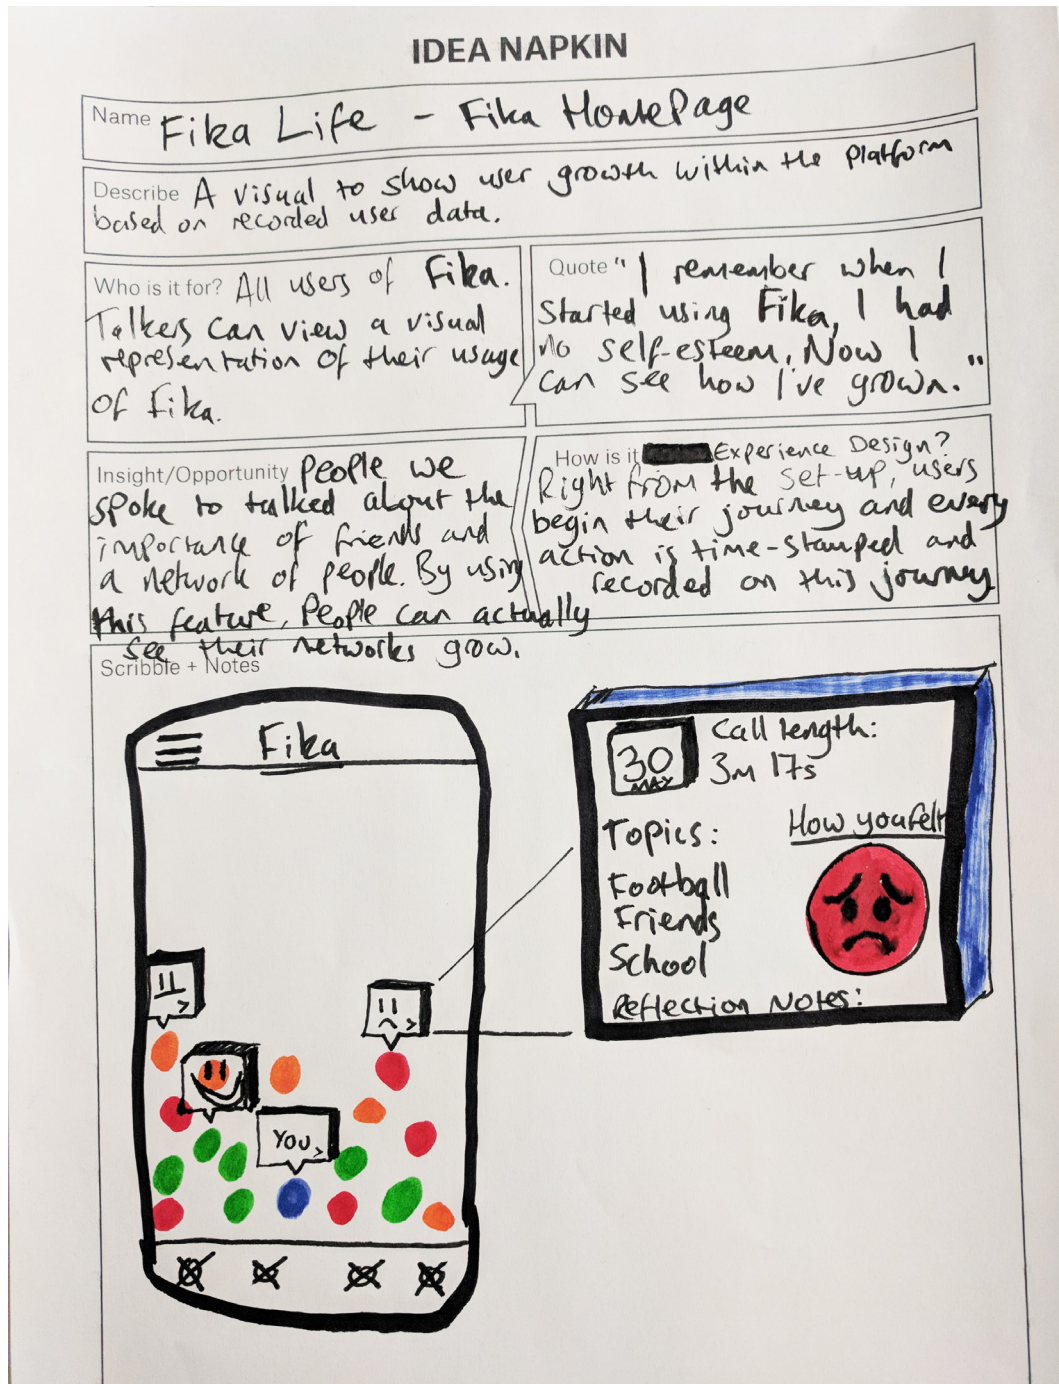 IDEA NAPKIN
Name Fika Life - Fika HomePage
Describe A visual to show user growth within the platform
based on recorded user data.
Who is it for? All users of Fika.
Talkers can view a visual
representation of their usage
of Fika.
Quote " I remember when I
started using Fika, I had
no self-esteem. Now I
can see how I've grown."
Insight/Opportunity People we
spoke to talked about the
importance of friends and
a network of people. By using
this feature, People can actually
see their networks grow.
How is it Experience Design?
Right from the set-up, users
begin their journey and every
action is time-stamped and
recorded on this journey
Scribble + Notes
Fika
YOU >
30
MAY
Call length:
3m 17s
Topics:
Football
Friends
School
How you felt
Reflection Notes: